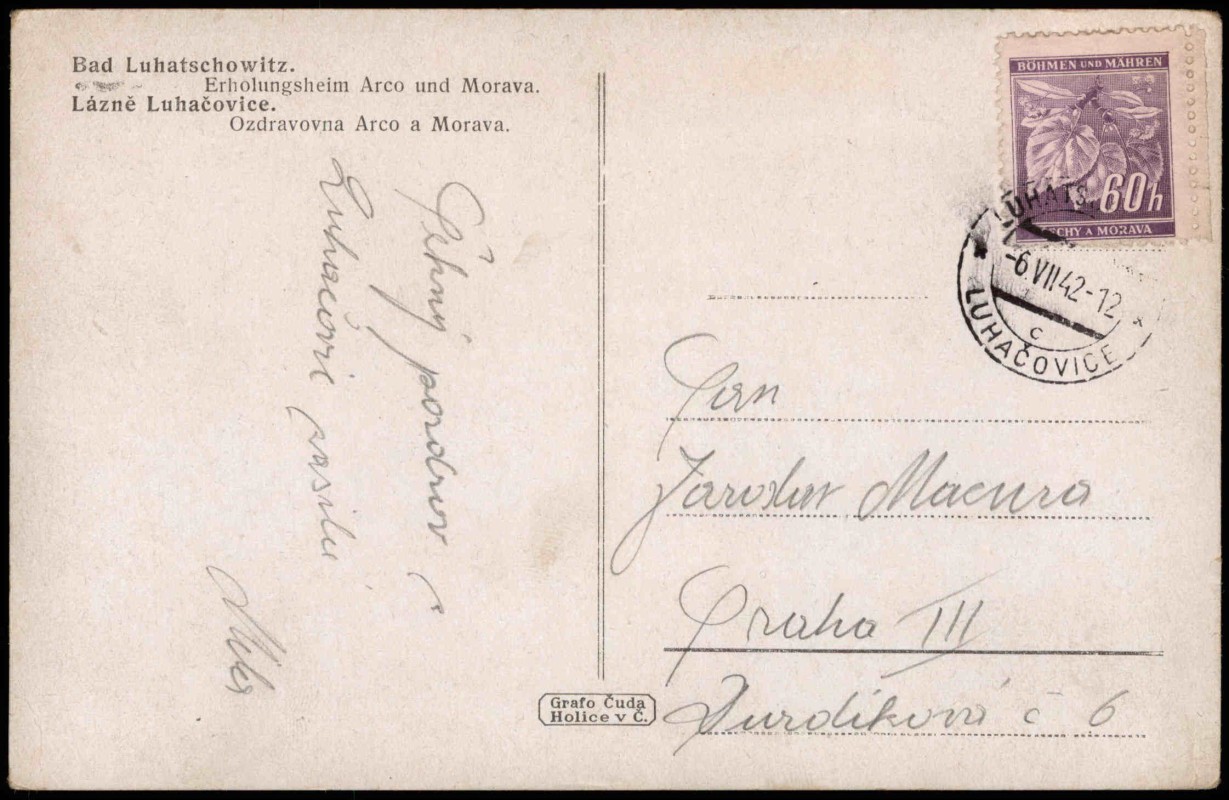 Bad Luhatschowitz.
Erholungsheim Arco und Morava.
Lázně Luhačovice.
Ozdravovna Arco a Morava.
Pěkný pozdrav z
Luhačovic zasílá
BÖHMEN UND MÄHREN
60h
ECHY A MORAVA
LUHATS
-6.VII.42-12
c
LUHAČOVICE
Pan
Jaroslav Macura
Praha III
Durdíková č 6
Grafo Čuda
Holice v Č.